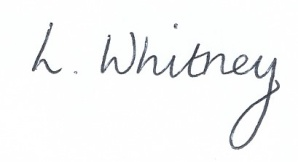 L. Whitney